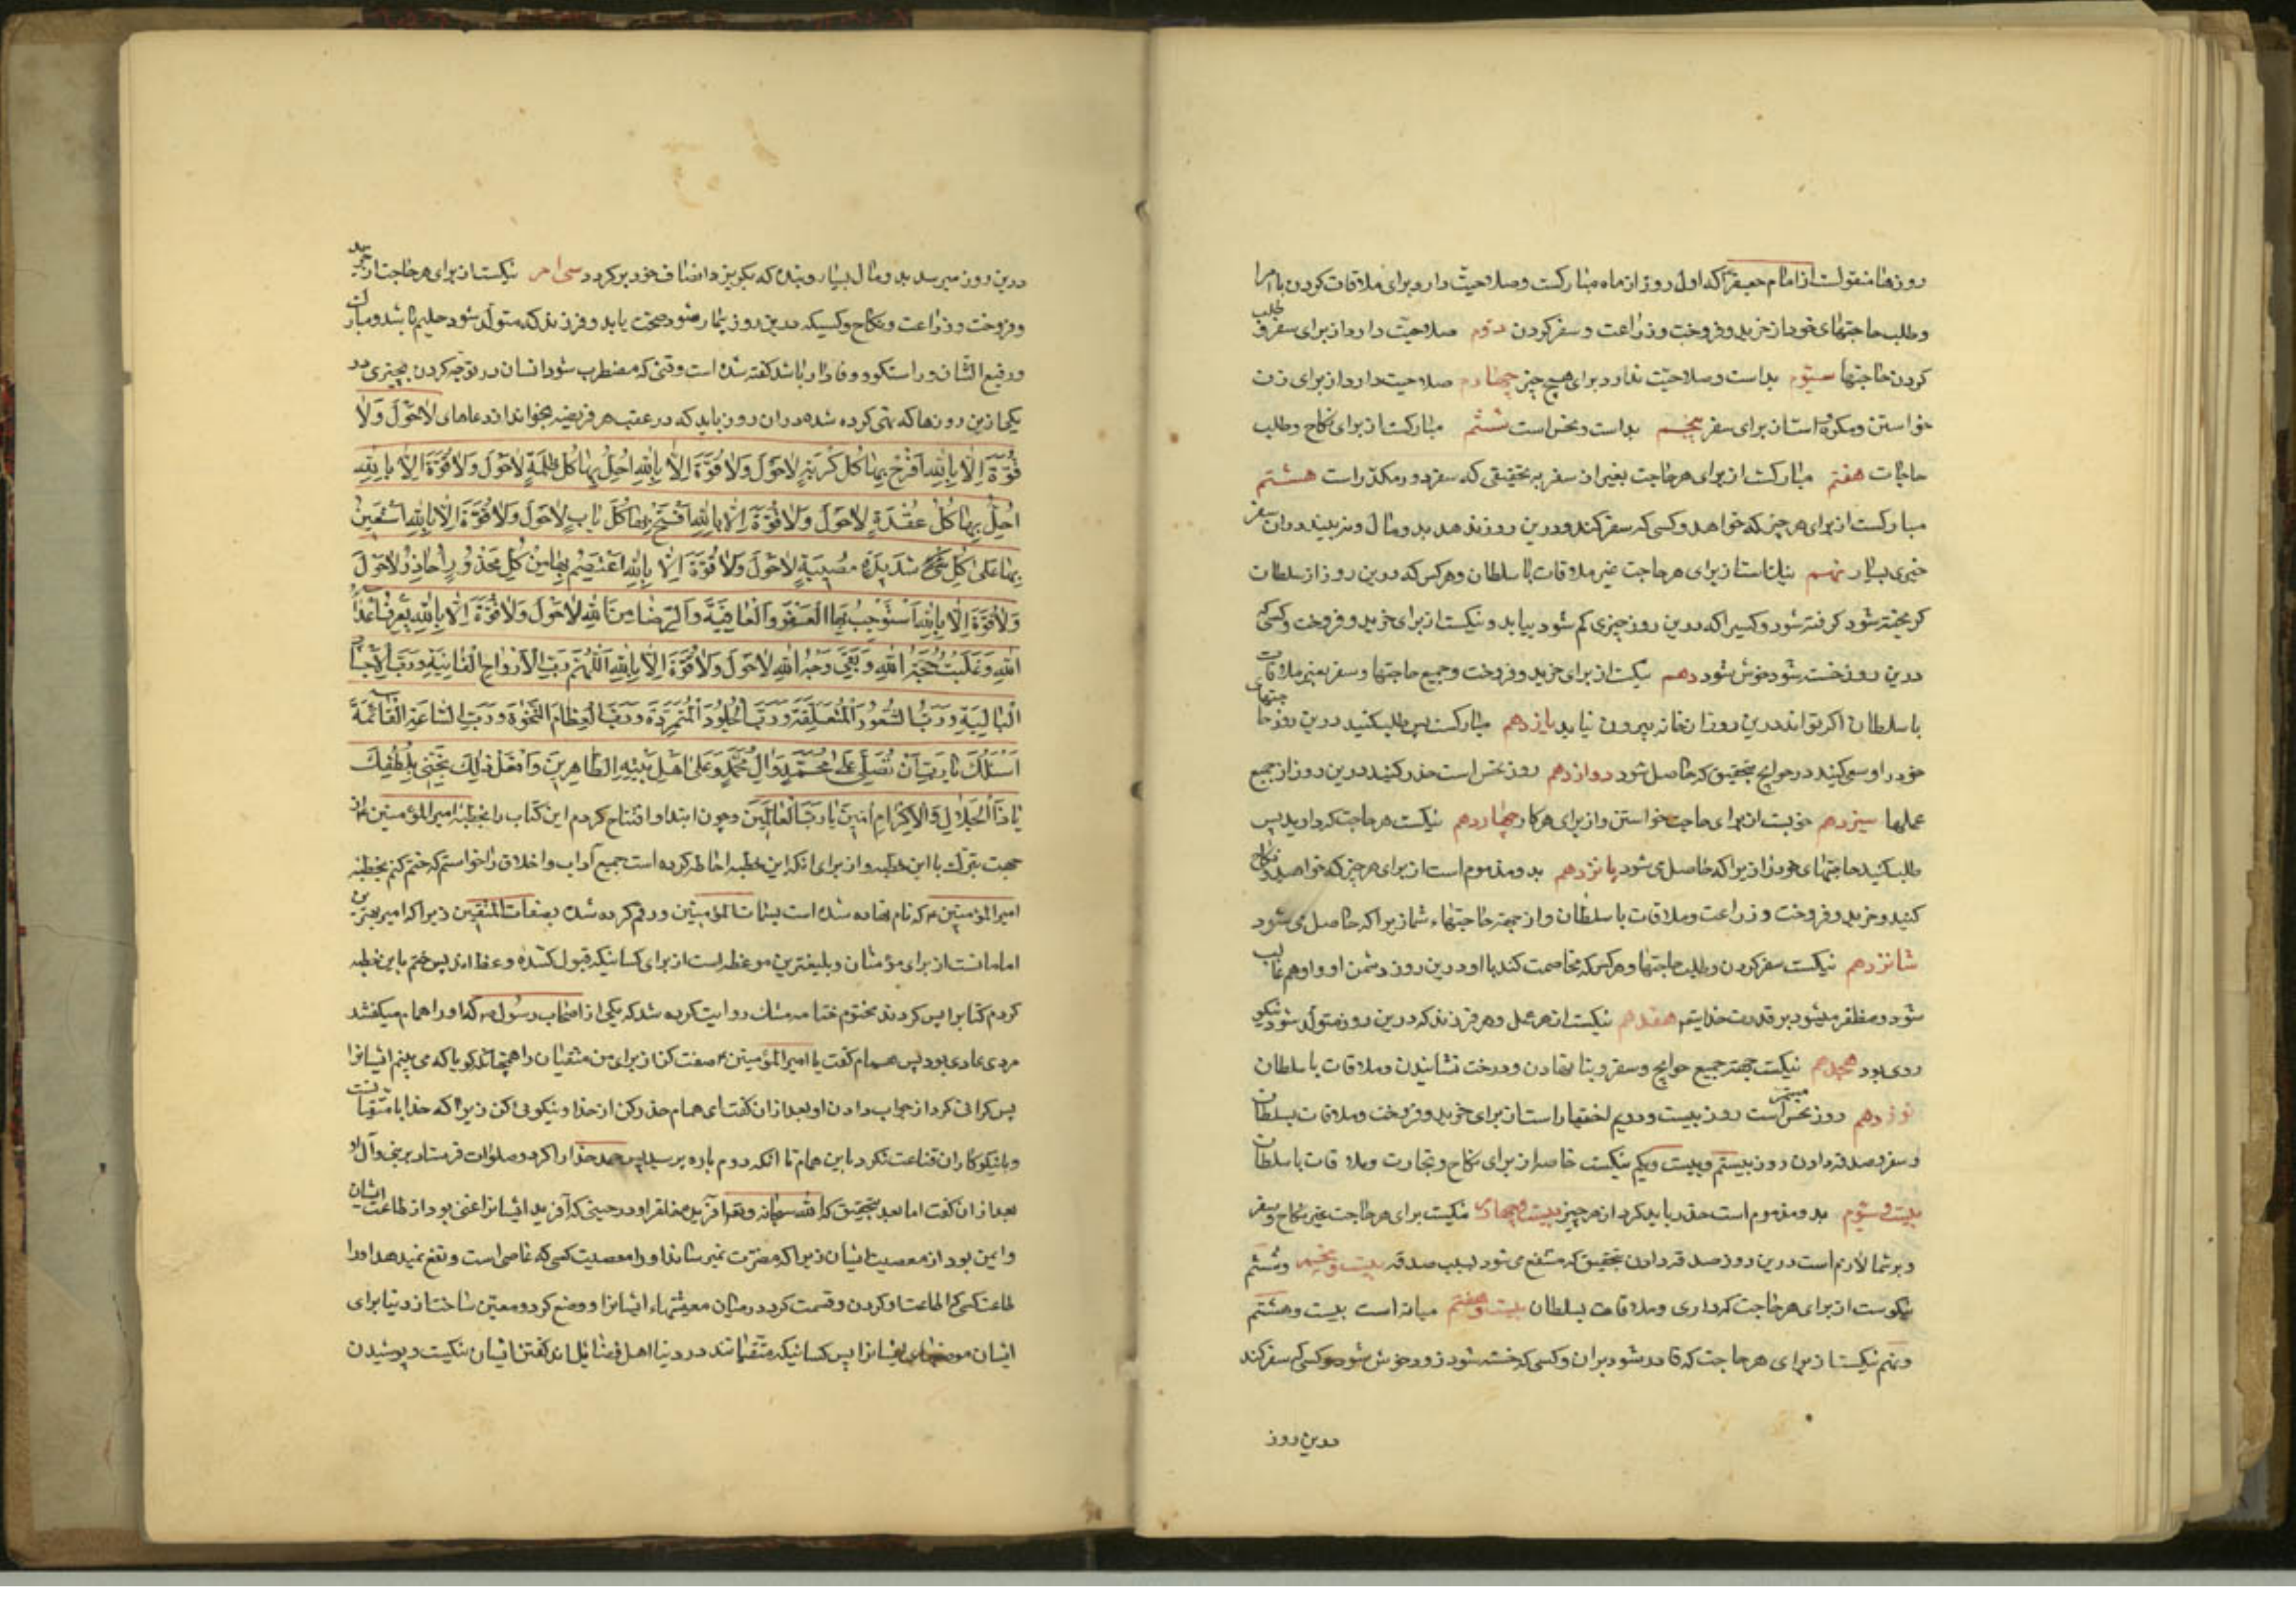 روزها منقولست از امام جعفر که اول روز از ماه مبارکست و صلاحیت دارد برای ملاقات کردن با امرا
و طلب حاجتهای خود از خرید و فروخت و زراعت و سفر کردن دوم صلاحیت دارد از برای سفر و طلب
کردن حاجتها سیّوم بد است و صلاحیت ندارد برای هیچ چیز چهارم صلاحیت دارد از برای زن
خواستن و مکروه است از برای سفر پنجم بد است و نحس است ششم مبارکست از برای نکاح و طلب
حاجات هفتم مبارکست از برای هر حاجت بغیر از سفر به تحقیقی که سفر دور مکدّر است هشتم
مبارکست از برای هر چیز که خواهد و کسی که سفر کند و درین روز ندهد بد و مال و نبیند دران سفر
خیری بسیار نهم نیک است از برای هر حاجت غیر ملاقات با سلطان و هر کس که درین روز از سلطان
گریخته شود گرفته شود و کسیرا که درین روز چیزی کم شود بیابد و نیکست از برای خرید و فروخت و کسی که
درین روز خسته شود خوش شود دهم نیکست از برای خرید و فروخت و جمیع حاجتها و سفر بغیر ملاقات
با سلطان اگر تواند درین روز از خانه بیرون نیاید یازدهم مبارکست پس طلب کنید درین روز حاجتهای
خود را و سعی کنید در حوایج بتحقیق که حاصل شود دوازدهم روز نحس است حذر کنید درین روز از جمیع
عملها سیزدهم خوبست از برای حاجت خواستن و از برای هر کار چهاردهم نیکست هر حاجت که دارید پس
طلب کنید حاجتهای خود را زیرا که حاصل می شود پانزدهم بد و مذموم است از برای هر چیز که خواهید نکاح
کنید و خرید و فروخت و زراعت و ملاقات با سلطان و از جهة حاجتهاء شما زیرا که حاصل می شود
شانزدهم نیکست سفر کردن و طلب حاجتها و هر کس که مخاصمت کند با او درین روز دشمن او و او هم غالب
شود و مظفر میشود بر قدرت خدایتع هفدهم نیکست از هر عمل و هر فرزند که درین روز متولد شود نیکو
روی بود هجدهم نیکست جهة جمیع حوایج و سفر و بنا نهادن و درخت نشانیدن و ملاقات با سلطان
نوزدهم روز نحس مستمر است روز بیست و دویم اختیار است از برای خرید و فروخت و ملاقات بسلطان
و سفر و صدقه دادن روز بیستم و بیست و یکم نیکست خاصه از برای نکاح و تجارت و ملاقات با سلطان
بیست و سیّوم بد و مذموم است حذر باید کرد از هر چیز بیست و چهارم نیکست برای هر حاجت غیر نکاح و سفر
و بر شما لازم است درین روز صدقه دادن بتحقیق که منتفع می شود بسبب صدقه بیست و پنجم و ششم
نیکوست از برای هر حاجت که داری و ملاقات بسلطان بیست و هفتم میانه است بیست و هشتم
و نهم نیکست از برای هر حاجت که قادر شود بران و کسی که خسته شود زود خوش شود و کسی که سفر کند
درین روز
درین روز میرسد بد و مال بسیار و بنده که بگریزد انصاف خود بر گردد سی ام نیکست از برای هر حاجت از خرید
و فروخت و زراعت و نکاح و کسیکه درین روز بیمار شود صحت یابد و فرزند که متولد شود حلیم باشد و مبارک
و رفیع الشان و راستگو و وفادار باشد گفته شده است وقتی که مضطرب شود انسان در توجه کردن بچیزی در
یکی ازین روزها که نهی کرده شده دران روز باید که در عقب هر فریضه بخواند از دعاهای لاحَوْلَ وَلا
قُوَّةَ اِلّا بِاللّهِ اَفْرُجُ بِهَا كُلَّ كُرْبَةٍ لاحَوْلَ وَلا قُوَّةَ اِلّا بِاللّهِ اَحُلُّ بِهَا كُلَّ ظُلْمَةٍ لاحَوْلَ وَلا قُوَّةَ اِلّا بِاللّهِ
اَحُلُّ بِهَا كُلَّ عُقْدَةٍ لاحَوْلَ وَلا قُوَّةَ اِلّا بِاللّهِ اَفْتَحُ بِهَا كُلَّ بَابٍ لاحَوْلَ وَلا قُوَّةَ اِلّا بِاللّهِ اَسْتَعِينُ
بِهَا عَلى كُلِّ شَدِيدَةٍ مُصِيبَةٍ لاحَوْلَ وَلا قُوَّةَ اِلّا بِاللّهِ اَعْتَصِمُ بِهَا مِنْ كُلِّ مَحْذُورٍ اُحَاذِرُ لاحَوْلَ
وَلا قُوَّةَ اِلّا بِاللّهِ اَسْتَوْجِبُ بِهَا الْعَفْوَ وَالْعَافِيَةَ وَالرِّضَا مِنَ اللّهِ لاحَوْلَ وَلا قُوَّةَ اِلّا بِاللّهِ
اللّهِ وَغَلَبَتْ حُجَّةُ اللّهِ وَبَقِيَ وَجْهُ اللّهِ لاحَوْلَ وَلا قُوَّةَ اِلّا بِاللّهِ اَللّهُمَّ رَبَّ الْاَرْوَاحِ الْفَانِيَةِ وَرَبَّ الْاَجْسَادِ
الْبَالِيَةِ وَرَبَّ الشُّعُورِ الْمُتَمَعِّطَةِ وَرَبَّ الْجُلُودِ الْمُتَمَزِّقَةِ وَرَبَّ الْعِظَامِ النَّخِرَةِ وَرَبَّ السَّاعَةِ الْقَائِمَةِ
اَسْئَلُكَ يَا رَبِّ اَنْ تُصَلِّيَ عَلى مُحَمَّدٍ وَآلِ مُحَمَّدٍ وَعَلى اَهْلِ بَيْتِهِ الطَّاهِرِينَ وَافْعَلْ ذلِكَ بِخَفِيِّ لُطْفِكَ
يَا ذَا الْجَلالِ وَالْاِكْرَامِ اٰمِينَ يَا رَبَّ الْعَالَمِينَ و چون ابتدا و افتتاح کردم این کتاب را بخطبه امیرالمؤمنین از
جهت تبرک با این خطبه و از برای انکه این خطبه احاطه کرده است جمیع آداب و اخلاق را خواستم که ختم کنم بخطبه
امیرالمؤمنین که نام نهاده شده است بسمات المؤمنین و رقم کرده شده بصفات المتقین زیرا که امیر بهترین
امامانست از برای مؤمنان و بلیغترین موعظه است از برای کسانیکه قبول کننده وعظ اند پس ختم باین خطبه
کردم کتابرا پس کردند مختوم ختامه مسک روایت کرده شد که یکی از اصحاب رسول که او را همام میگفتند
مردی عابدی بود پس همام گفت یا امیرالمؤمنین صفت کن از برای من متقیان را همچنانکه گویا که می بینم ایشانرا
پس گرانی کرد از جواب دادن او بعد ازان گفت ای همام حذر کن از خدا و نیکویی کن زیرا که خدا با متقیانست
و با نیکوکاران قناعت نکرد باین همام تا انکه دوم باره پرسید پس حمد خدا را کرد و صلوات فرستاد بر نبی و آل او
بعد ازان گفت اما بعد بتحقیق که الله سبحانه و تعالی آفرید خلقرا و در حینی که آفرید ایشانرا غنی بود از طاعت ایشان
و ایمن بود از معصیت ایشان زیرا که مضرت نمیرساند او را معصیت کسی که عاصی است و نفع نمیدهد او را
طاعت کسی که اطاعت او کردن و قسمت کرد در میان معیشتهاء ایشانرا و وضع کرد و معین ساخت از دنیا برای
ایشان موضعهای ایشانرا پس کسانیکه متقیانند در دنیا اهل فضایل اند گفتن ایشان نیکست و پوشیدن